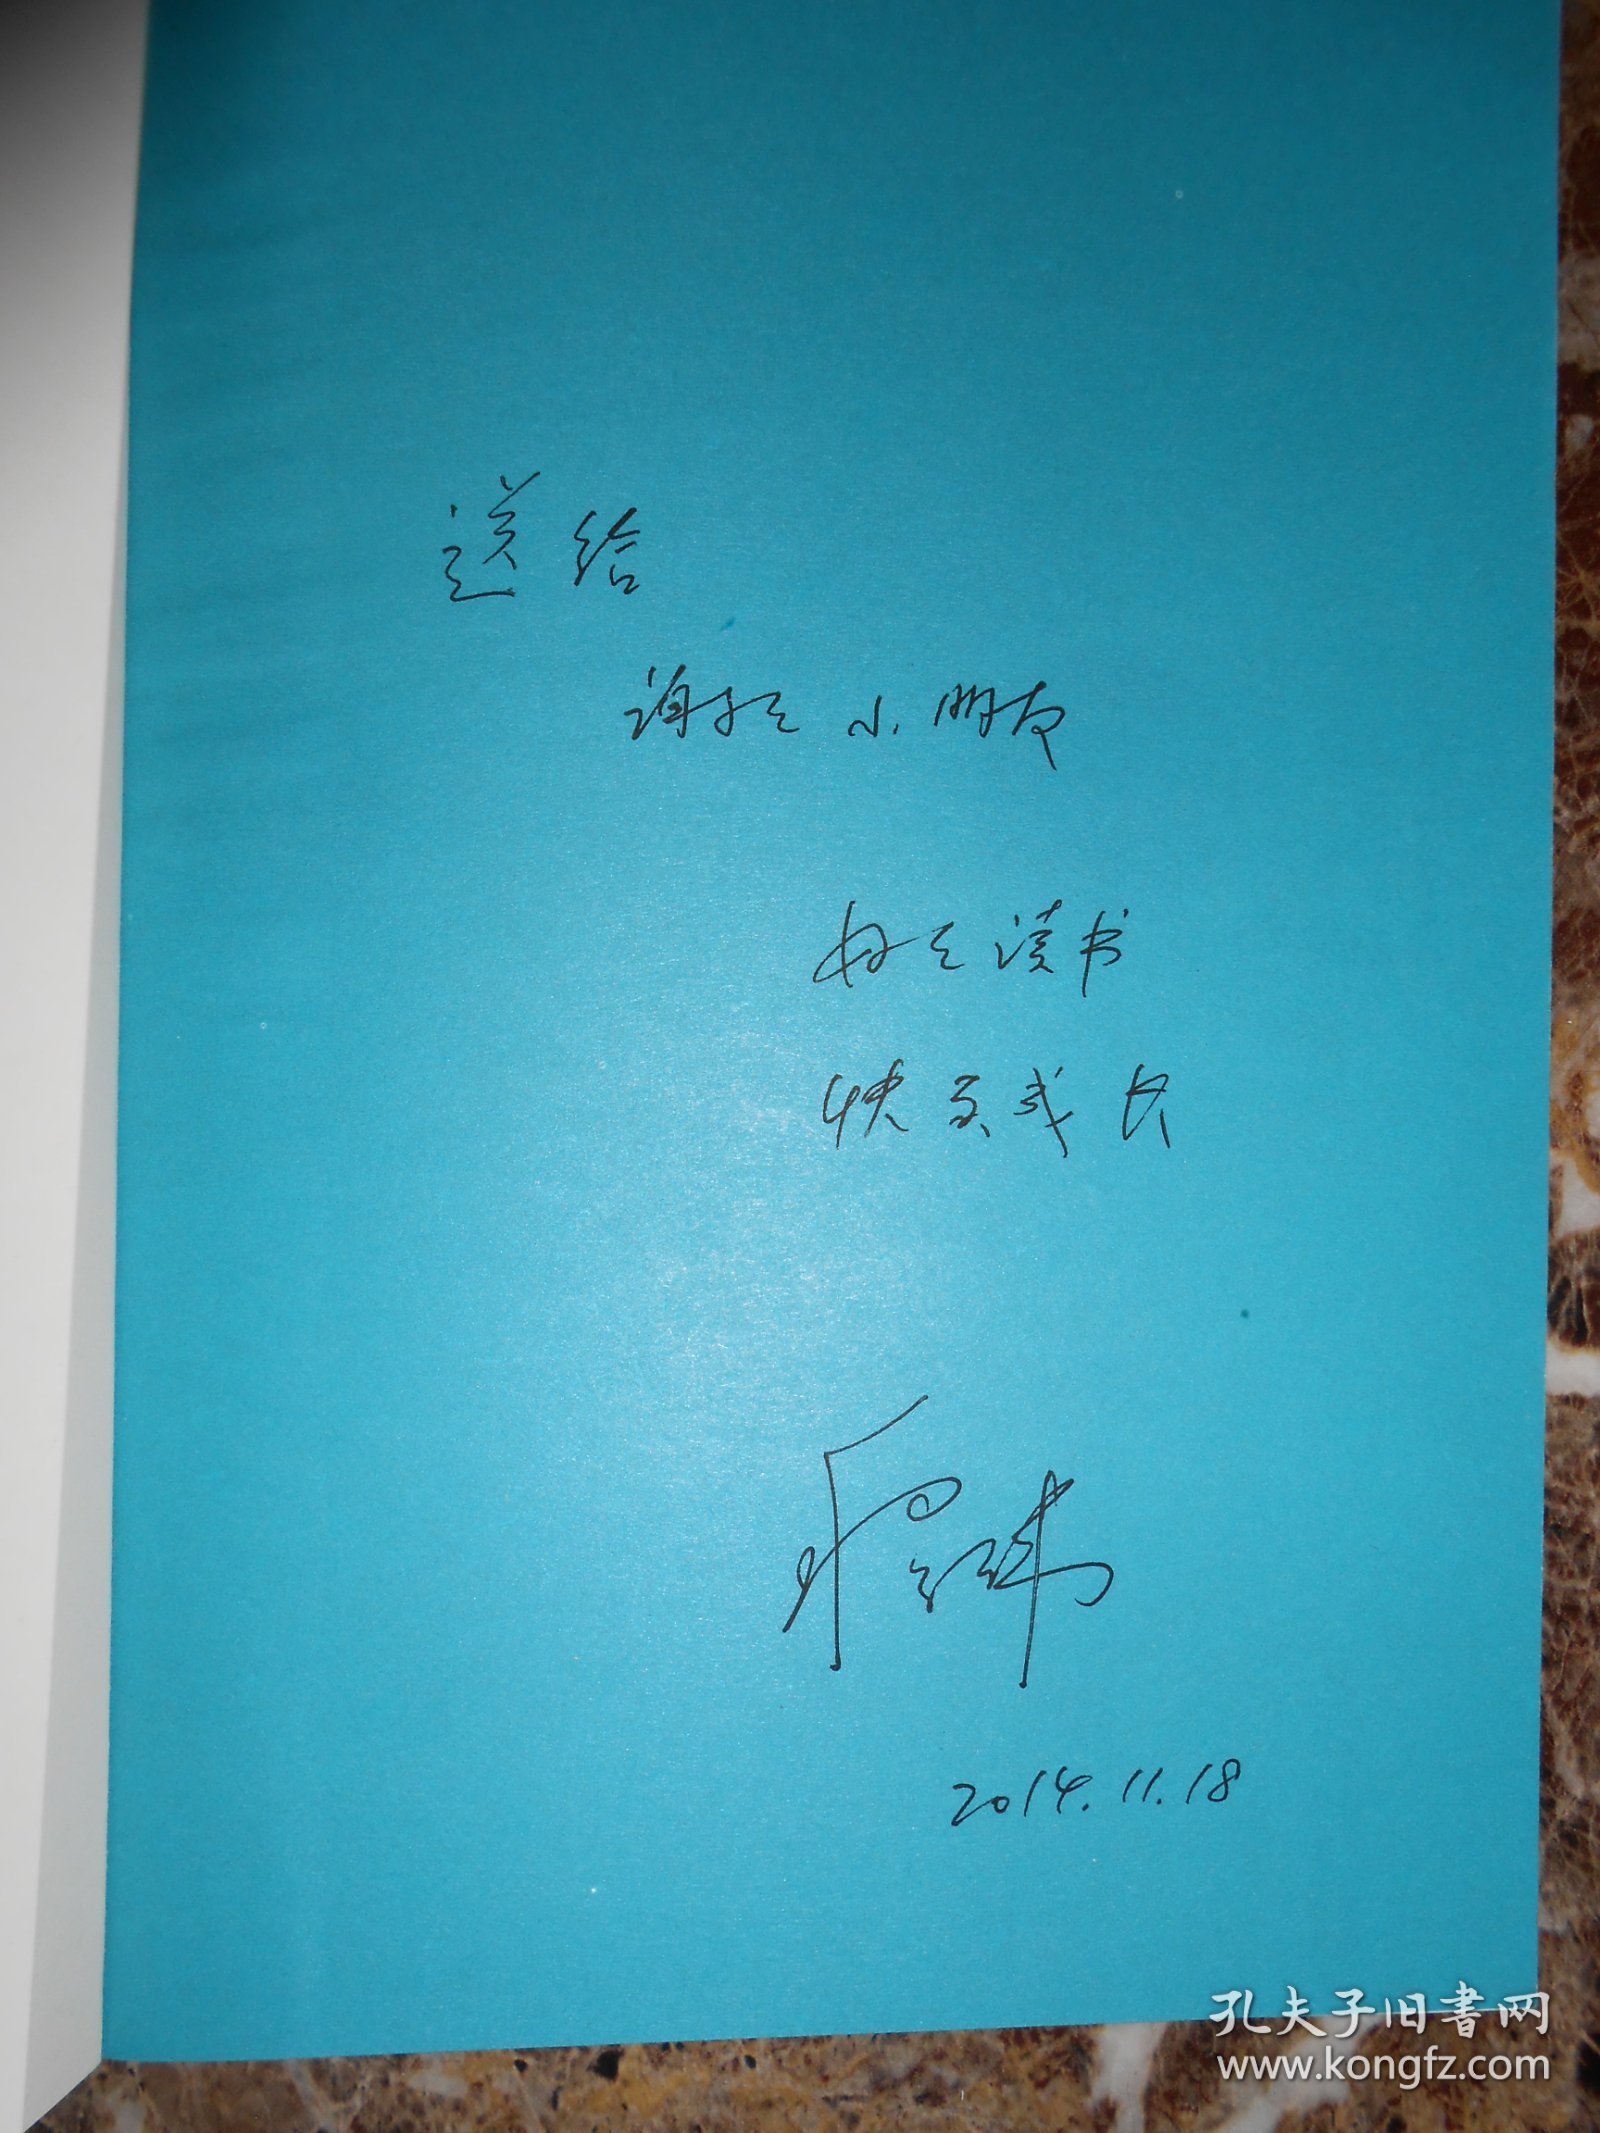 送给
谢 小朋友
好好读书
快乐成长
2014.11.18
孔夫子旧书网
www.kongfz.com